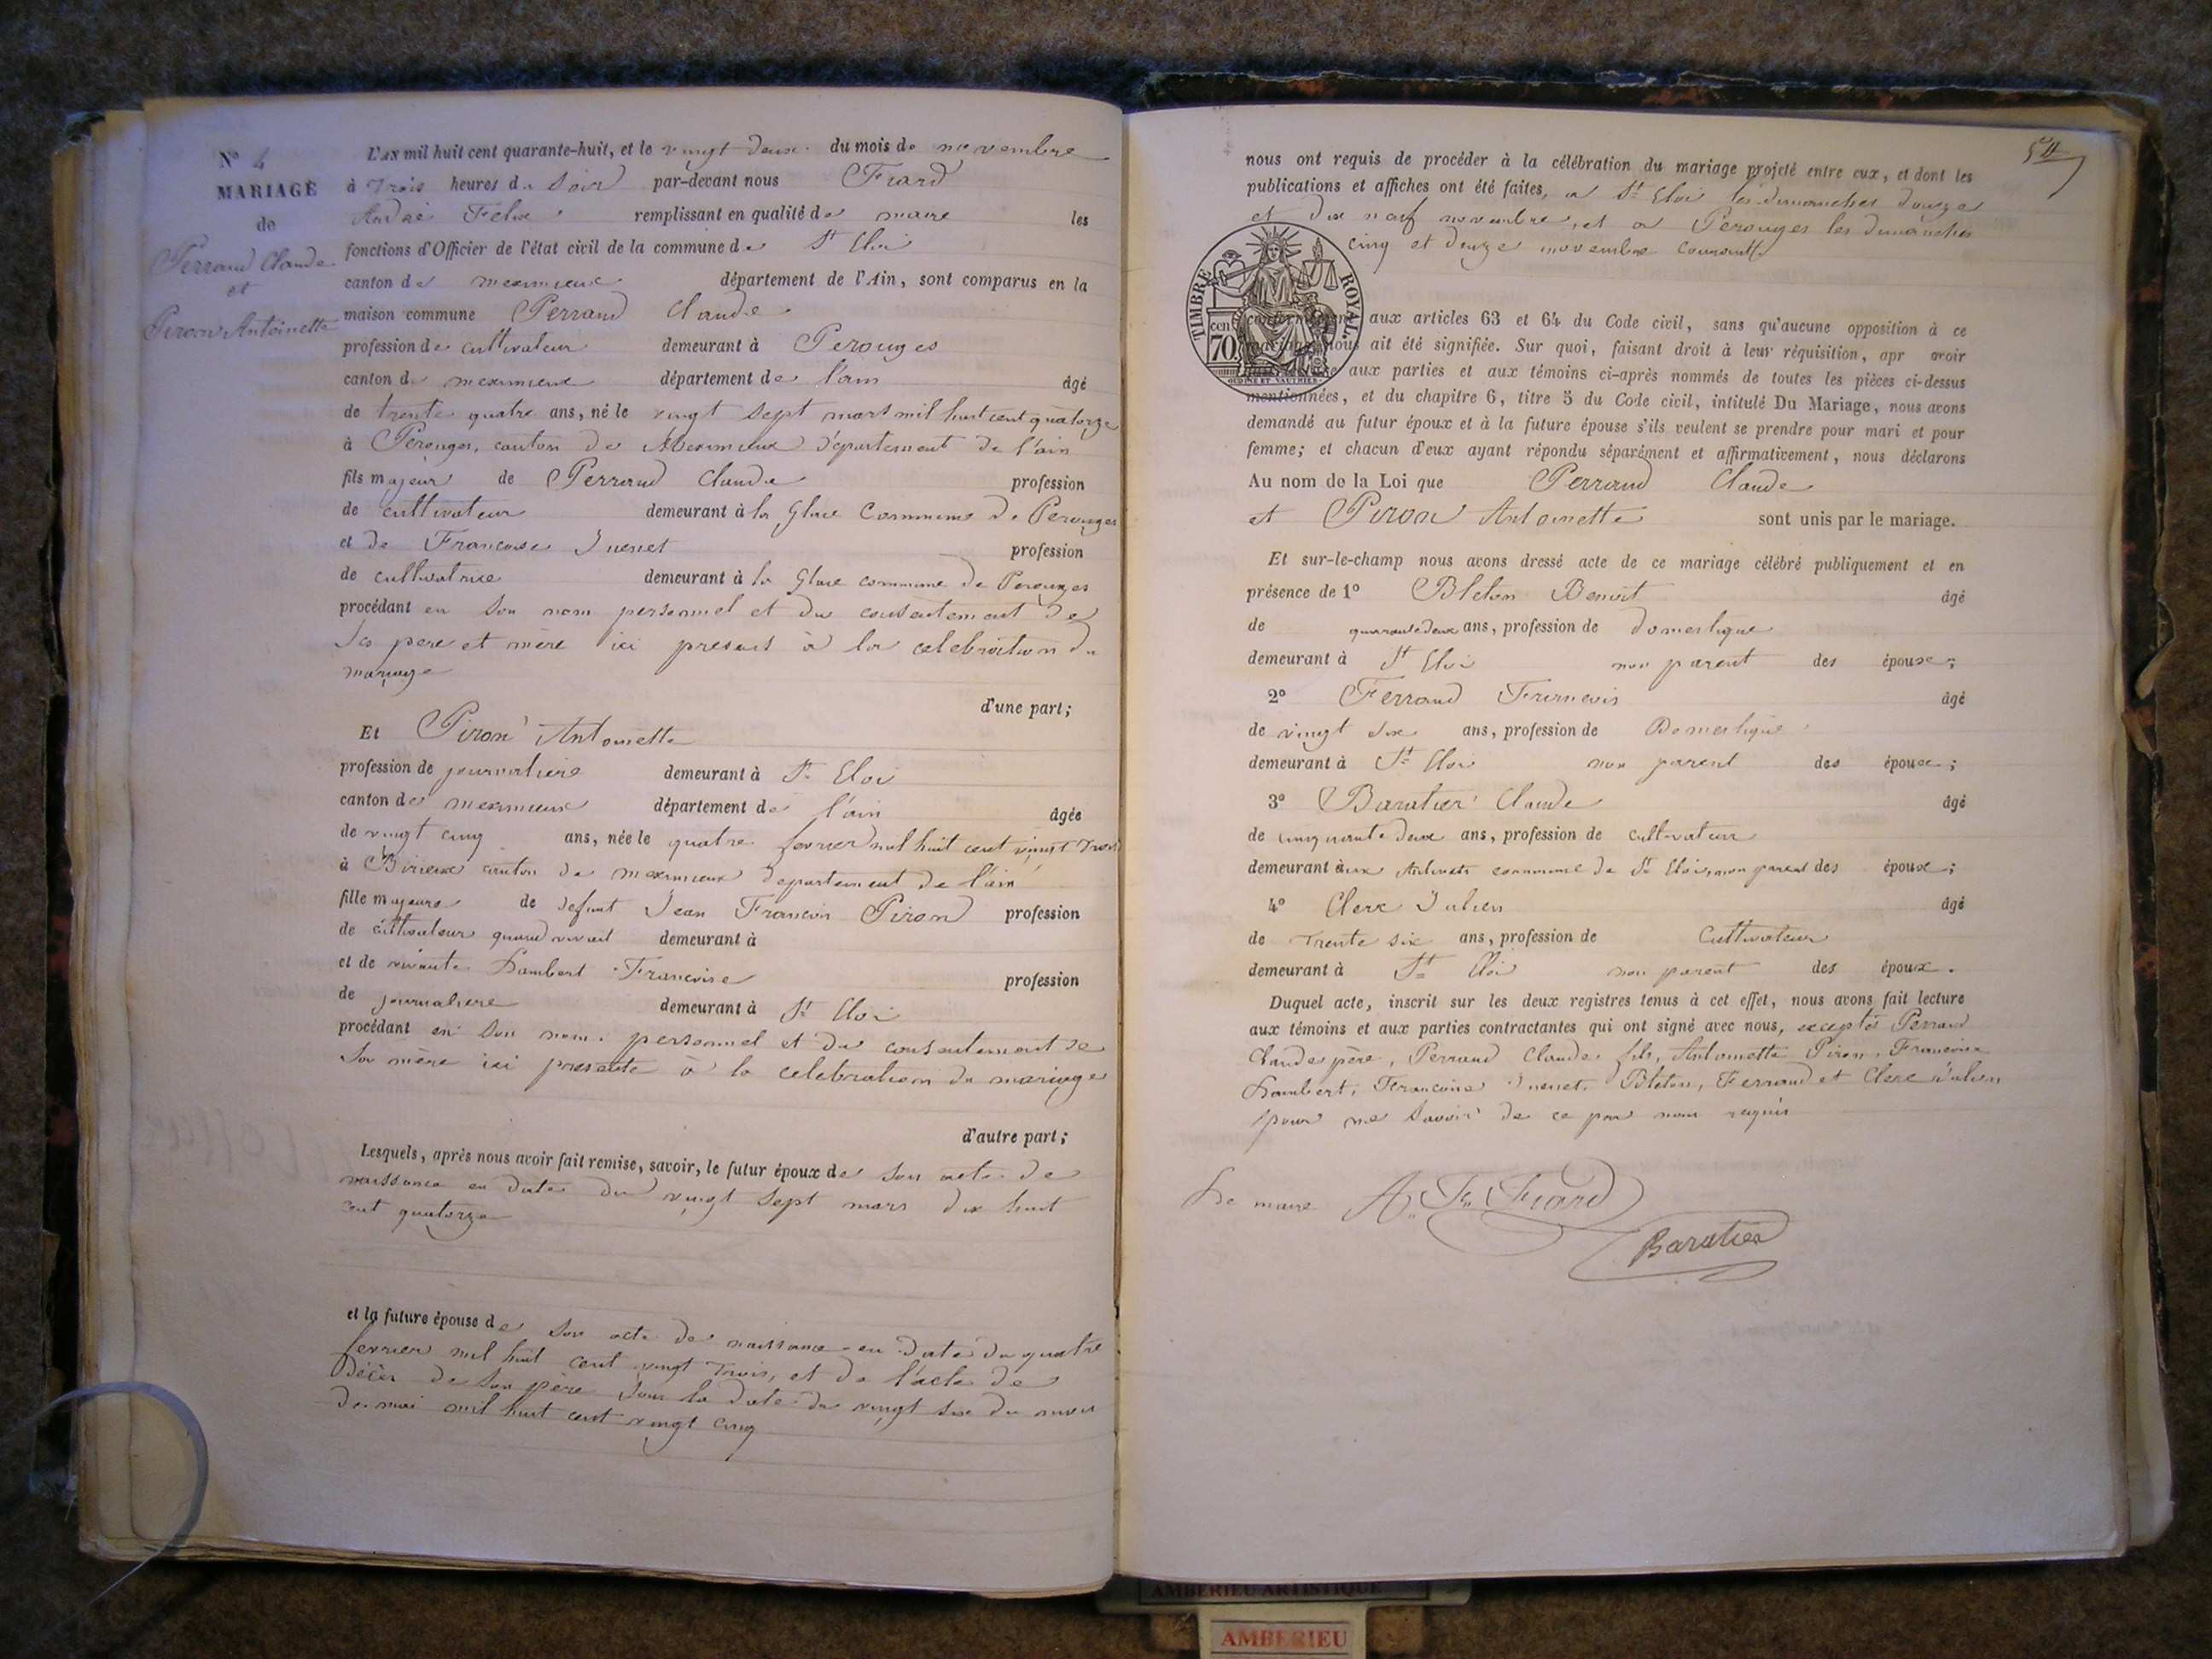 N° 4
MARIAGE
de
Perrand Claude
et
Piron Antoinette
L'AN mil huit cent quarante-huit, et le vingt deux du mois de novembre
à Trois heures du Soir par-devant nous Fiard
André Félix remplissant en qualité de maire les
fonctions d'Officier de l'état civil de la commune de St Eloi
canton de meximieux département de l'Ain, sont comparus en la
maison commune Perrand Claude
profession de cultivateur demeurant à Perouges
canton de meximieux département de l'ain âgé
de trente quatre ans, né le vingt sept mars mil huit cent quatorze
à Perouges, canton de Meximieux département de l'ain
fils majeur de Perrand Claude profession
de cultivateur demeurant à la Glaie Commune de Perouges
et de Francoise Juenet profession
de cultivatrice demeurant à la Glaie commune de Perouges
procédant en son nom personnel et du consentement de
Ses pere et mère ici present à la celebration du
mariage
d'une part;
Et Piron Antoinette
profession de journaliere demeurant à St Eloi
canton de meximieux département de l'ain âgée
de vingt cinq ans, née le quatre fevrier mil huit cent vingt Trois
à Birieux canton de meximieux departement de l'ain
fille majeure de defunt Jean Francois Piron profession
de cultivateur quand vivait demeurant à
et de vivante Lambert Francoise profession
de journaliere demeurant à St Eloi
procédant en son nom personnel et du consentement de
Sa mère ici presente à la celebration du mariage
d'autre part;
Lesquels, après nous avoir fait remise, savoir, le futur époux de son acte de
naissance en date du vingt sept mars dix huit
cent quatorze
et la future épouse de son acte de naissance en date du quatre
fevrier mil huit cent vingt Trois, et de l'acte de
Décès de Son père sous la date du vingt six du mois
de mai mil huit cent vingt cinq
54
nous ont requis de procéder à la célébration du mariage projeté entre eux, et dont les
publications et affiches ont été faites, a St Eloi les dimanches douze
et dix neuf novembre, et a Perouges les dimanches
cinq et douze novembre courant
TIMBRE ROYAL
cen
70
OUDINE ET VAUTHIER
conformément aux articles 63 et 64 du Code civil, sans qu'aucune opposition à ce
mariage nous ait été signifiée. Sur quoi, faisant droit à leur réquisition, apr avoir
aux parties et aux témoins ci-après nommés de toutes les pièces ci-dessus
mentionnées, et du chapitre 6, titre 5 du Code civil, intitulé Du Mariage, nous avons
demandé au futur époux et à la future épouse s'ils veulent se prendre pour mari et pour
femme; et chacun d'eux ayant répondu séparément et affirmativement, nous déclarons
Au nom de la Loi que Perrand Claude
et Piron Antoinette sont unis par le mariage.
Et sur-le-champ nous avons dressé acte de ce mariage célébré publiquement et en
présence de 1° Bleton Benoit âgé
de quarante deux ans, profession de domestique
demeurant à St Eloi non parent des époux;
2° Ferrand Francois âgé
de vingt six ans, profession de Domestique
demeurant à St Eloi non parent des époux;
3° Baratier Claude âgé
de cinquante deux ans, profession de cultivateur
demeurant aux commune de St Eloi, non parent des époux;
4° Clerc Julien âgé
de Trente six ans, profession de Cultivateur
demeurant à St Eloi non parent des époux.
Duquel acte, inscrit sur les deux registres tenus à cet effet, nous avons fait lecture
aux témoins et aux parties contractantes qui ont signé avec nous, exceptés Perrand
Claude père, Perrand Claude fils, Antoinette Piron, Francoise
Lambert, Francoise Juenet, Bleton, Ferrand et Clerc Julien
pour ne Savoir de ce par nous requis
Le maire A. F. Fiard
Baratier
AMBERIEU ARTISTIQUE
AMBERIEU